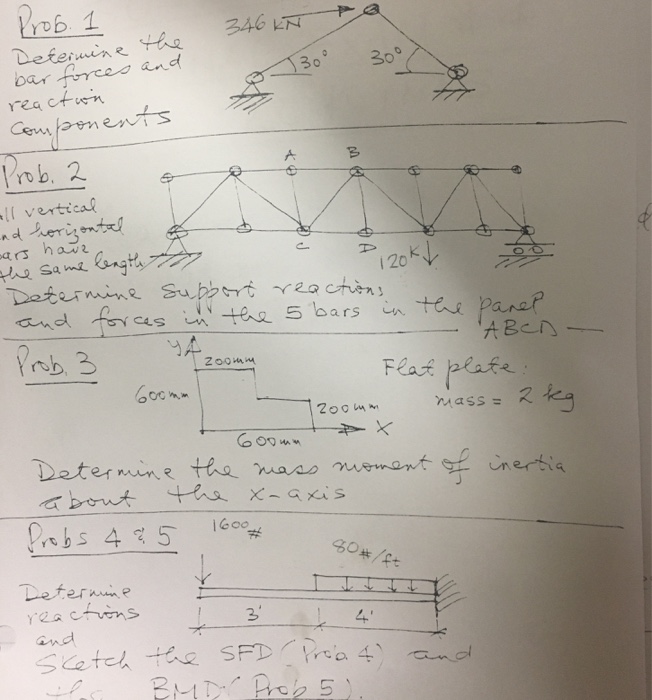 Prob. 1
346 KN
30°
30°
Determine the
bar forces and
reaction
components
Prob. 2
A
B
C
D
120K
all vertical
and horizontal
bars have
the same length
Determine support reactions
and forces in the 5 bars in the panel
ABCD
Prob. 3
y
200mm
600mm
200mm
X
600mm
Flat plate:
mass = 2 kg
Determine the mass moment of inertia
about the x-axis
Probs 4 & 5
1600#
80#/ft
3'
4'
Determine
reactions
and
Sketch the SFD (Prob 4) and
the BMD (Prob 5).